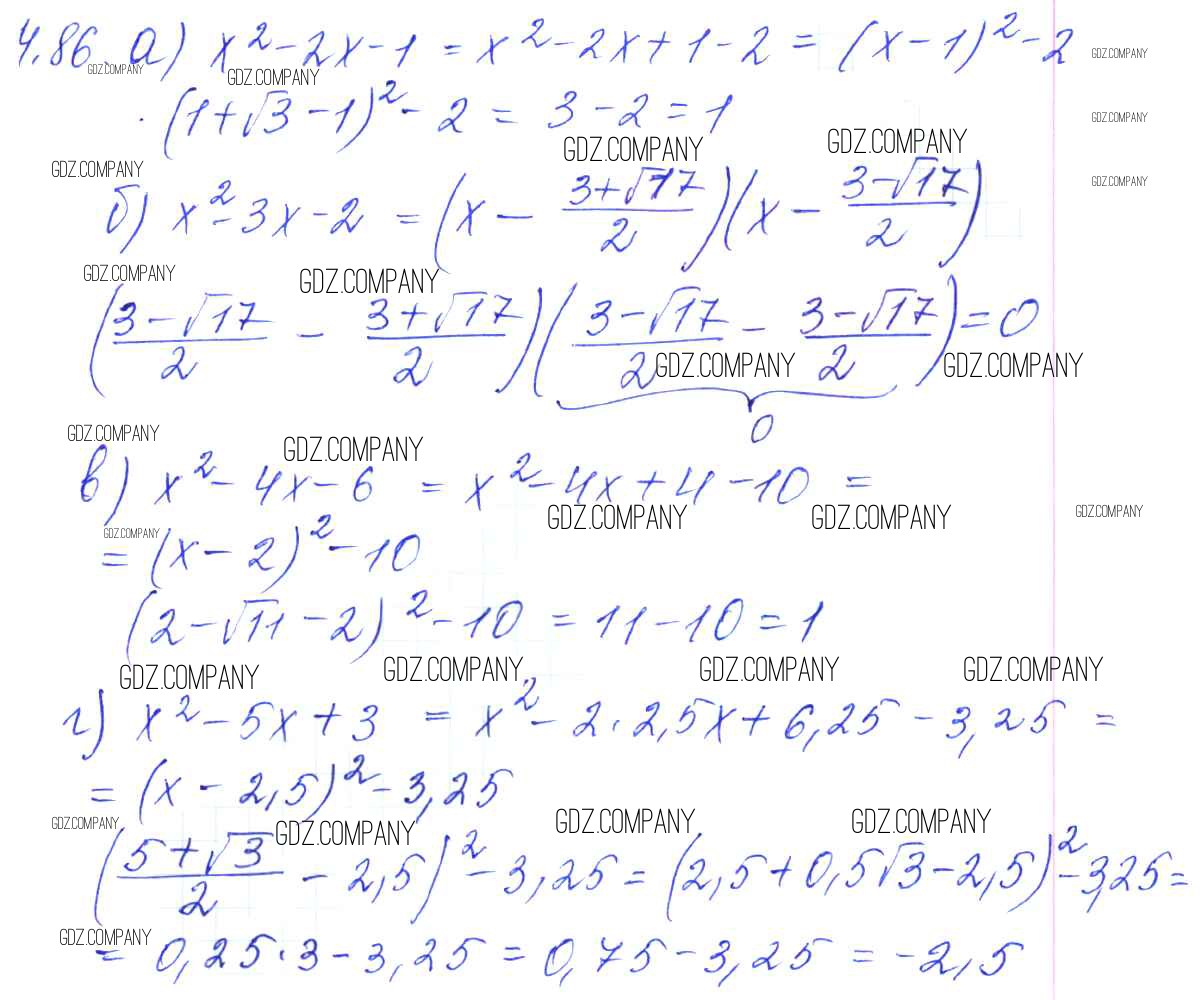 4.86 а) x² - 2x - 1 = x² - 2x + 1 - 2 = (x - 1)² - 2
GDZ.COMPANY GDZ.COMPANY GDZ.COMPANY
(1 + √3 - 1)² - 2 = 3 - 2 = 1
GDZ.COMPANY
GDZ.COMPANY GDZ.COMPANY GDZ.COMPANY GDZ.COMPANY
б) x² - 3x - 2 = (x - (3 + √17)/2)(x - (3 - √17)/2)
GDZ.COMPANY GDZ.COMPANY
((3 - √17)/2 - (3 + √17)/2)((3 - √17)/2 - (3 - √17)/2) = 0
GDZ.COMPANY GDZ.COMPANY
0
GDZ.COMPANY GDZ.COMPANY
в) x² - 4x - 6 = x² - 4x + 4 - 10 =
GDZ.COMPANY GDZ.COMPANY GDZ.COMPANY
GDZ.COMPANY
= (x - 2)² - 10
(2 - √11 - 2)² - 10 = 11 - 10 = 1
GDZ.COMPANY GDZ.COMPANY GDZ.COMPANY GDZ.COMPANY
г) x² - 5x + 3 = x² - 2·2,5x + 6,25 - 3,25 =
= (x - 2,5)² - 3,25
GDZ.COMPANY GDZ.COMPANY GDZ.COMPANY GDZ.COMPANY
((5 + √3)/2 - 2,5)² - 3,25 = (2,5 + 0,5√3 - 2,5)² - 3,25 =
GDZ.COMPANY
= 0,25·3 - 3,25 = 0,75 - 3,25 = -2,5